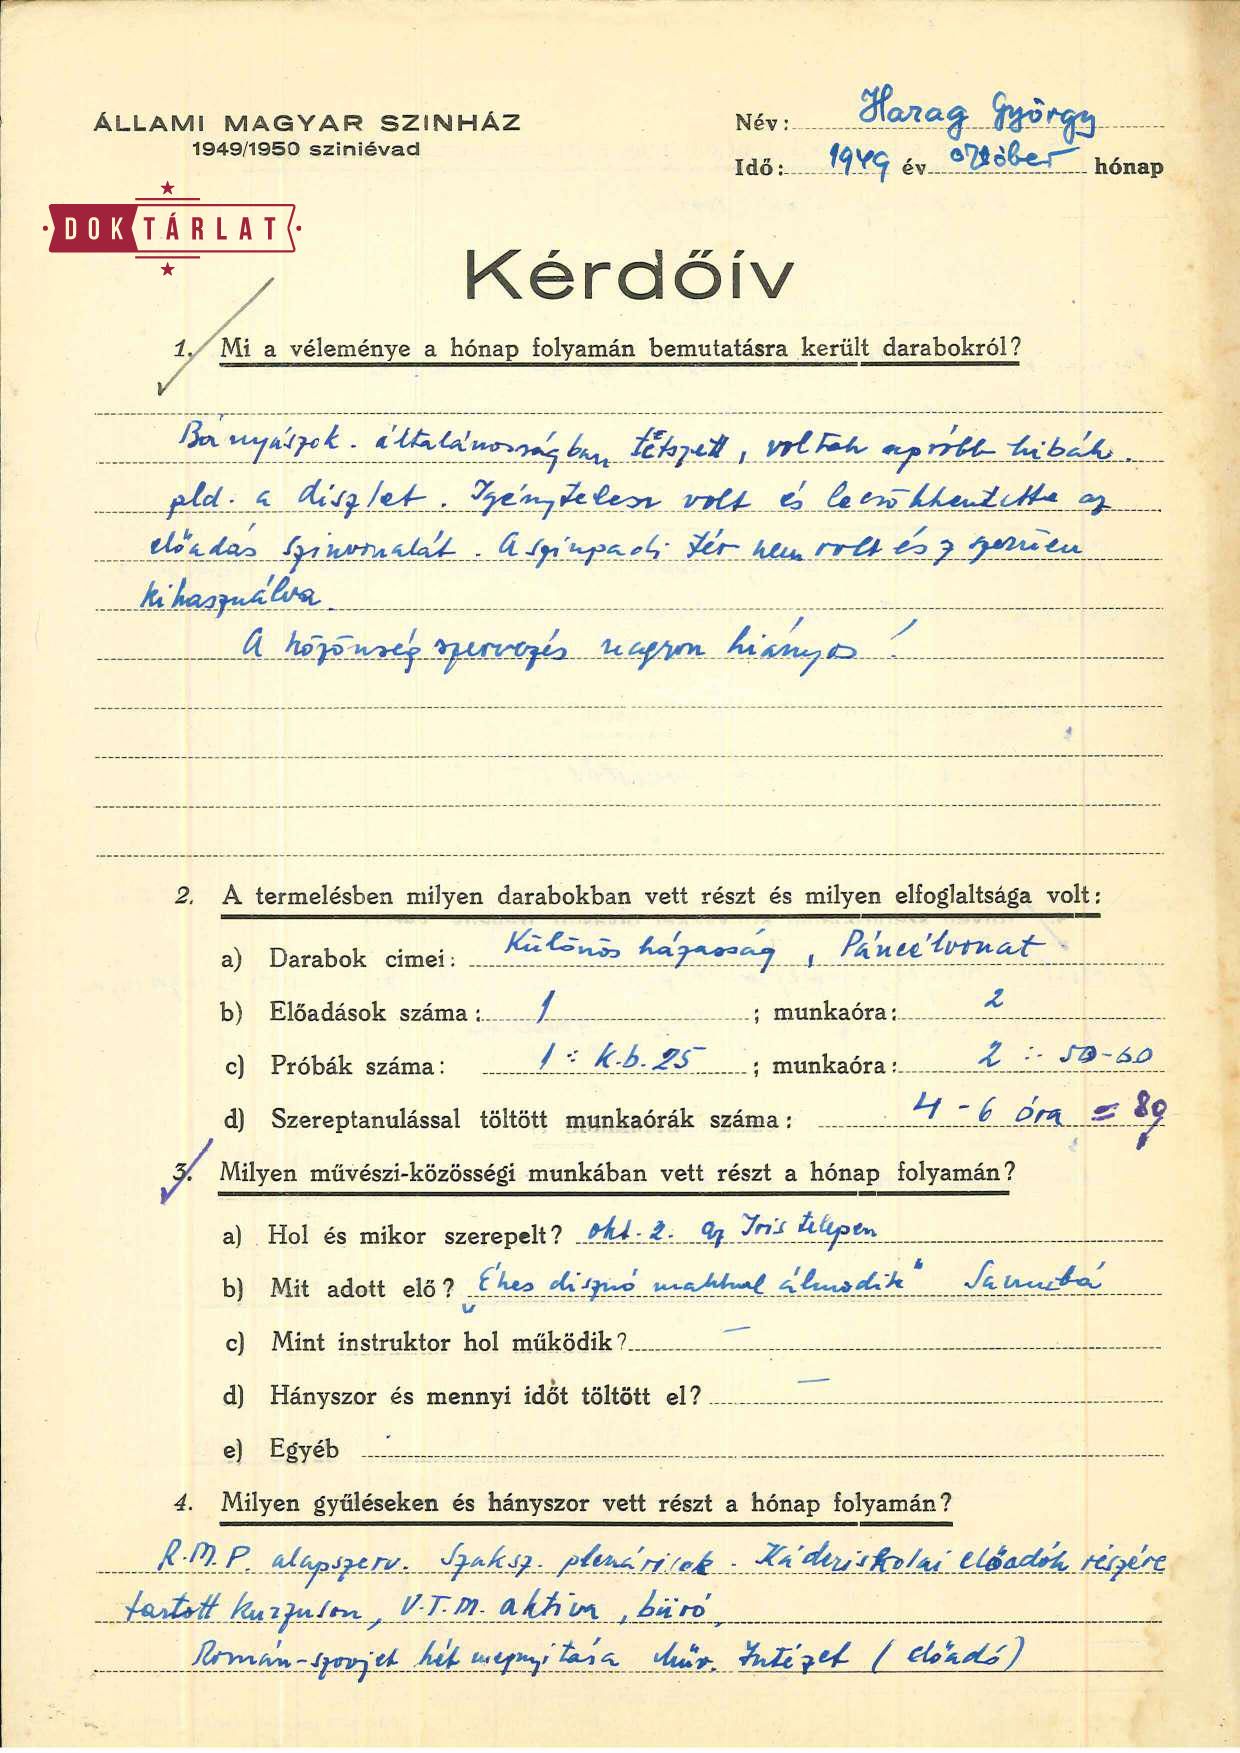 ÁLLAMI MAGYAR SZINHÁZ
1949/1950 sziniévad
Név: Harag György
Idő: 1949 év október hónap
DOKTÁRLAT
Kérdőív
1. Mi a véleménye a hónap folyamán bemutatásra került darabokról?
Bányászok. általánosságban tetszett, voltak apróbb hibák.
pld. a diszlet. Igénytelen volt és lecsökkentette az
előadás szinvonalát. A szinpadi tér nem volt ész szerüen
kihasználva.
A közönség szervezés nagyon hiányos!
2. A termelésben milyen darabokban vett részt és milyen elfoglaltsága volt:
a) Darabok cimei: Különös házasság, Páncélvonat
b) Előadások száma: 1 ; munkaóra: 2
c) Próbák száma: 1 : k.b. 25 ; munkaóra: 2 : 50-60
d) Szereptanulással töltött munkaórák száma: 4 - 6 óra =
3. Milyen művészi-közösségi munkában vett részt a hónap folyamán?
a) Hol és mikor szerepelt? okt. 2. az Iris telepen
b) Mit adott elő? „Éhes disznó makkal álmodik"
c) Mint instruktor hol működik? —
d) Hányszor és mennyi időt töltött el? —
e) Egyéb
4. Milyen gyűléseken és hányszor vett részt a hónap folyamán?
R.M.P. alapszerv. Szaksz. plenárisok. Káderiskolai előadók részére
tartott kurzuson, V.T.M. aktiva, büró,
Román-szovjet hét megnyitása Müv. Intézet (előadó)